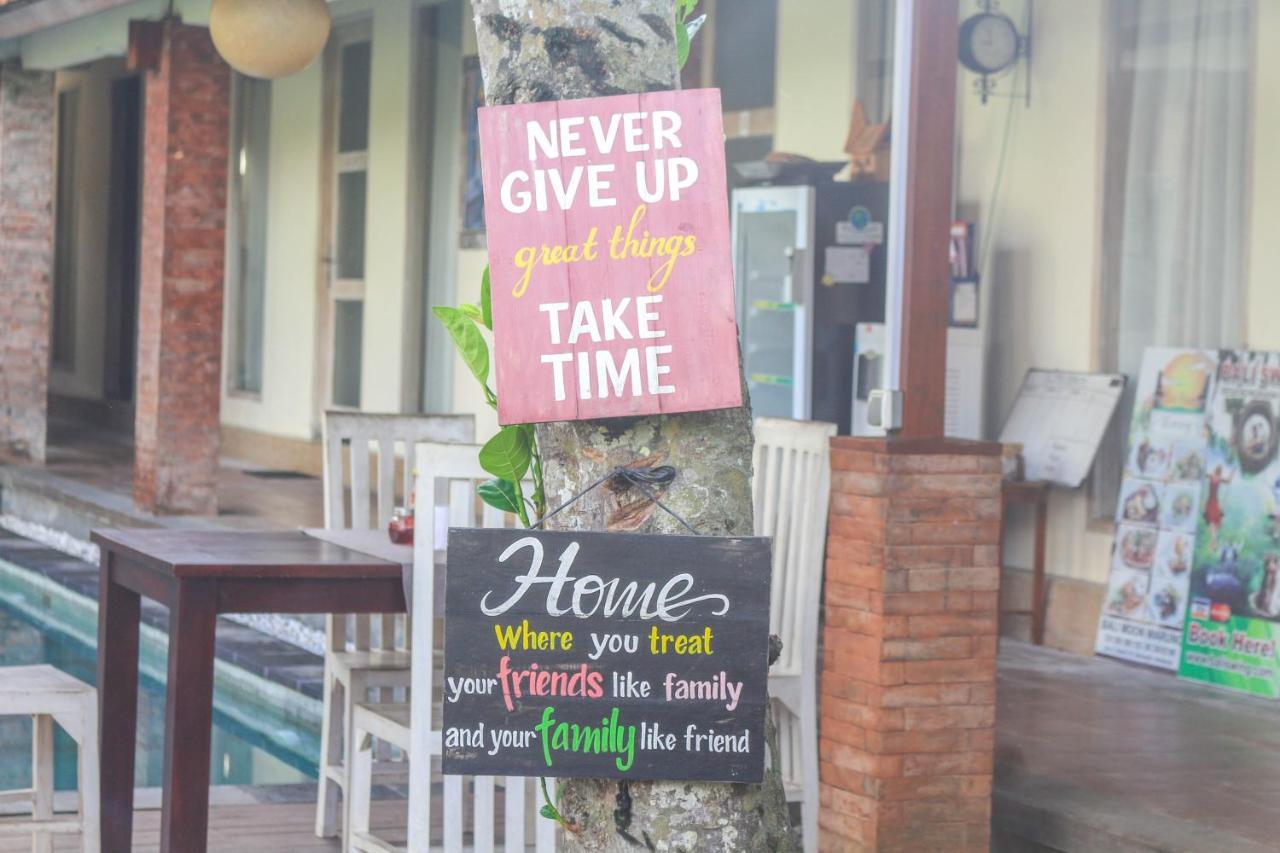 NEVER
GIVE UP
great things
TAKE
TIME
Home
Where you treat
your friends like family
and your family like friend
BALI SW
Book Here!